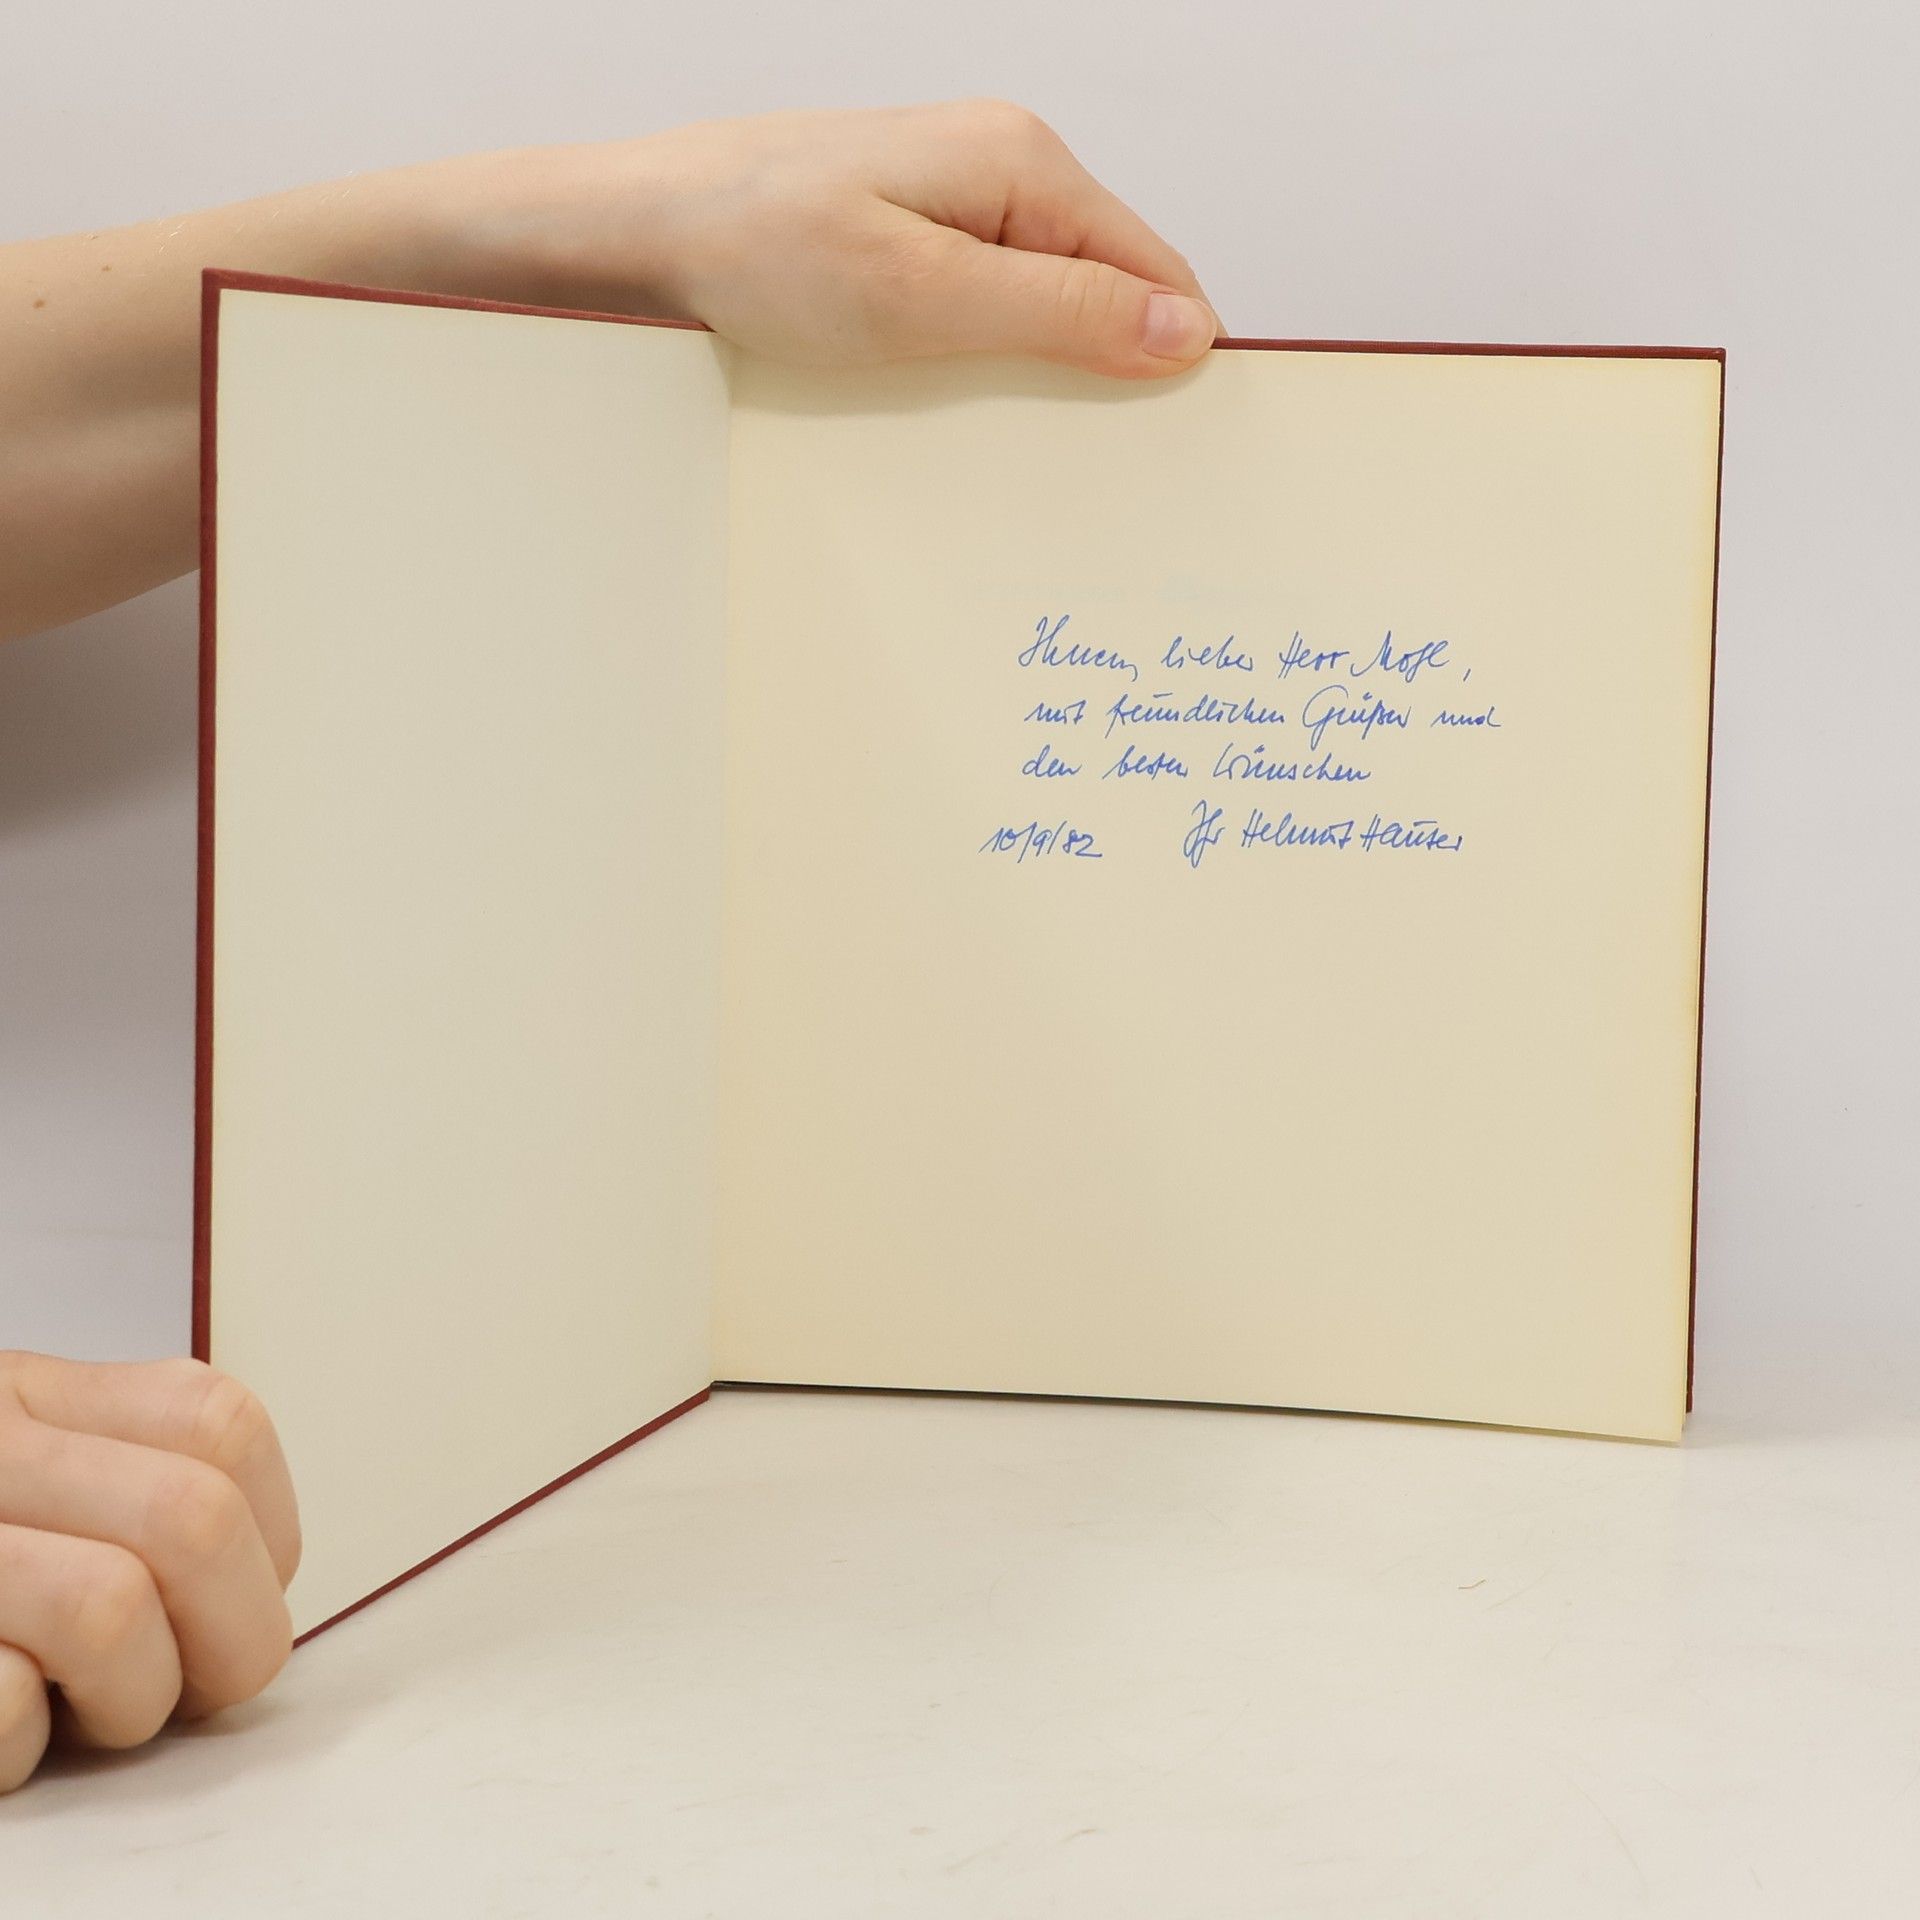 Ihnen, lieber Herr Mogl,
mit freundlichen Grüßen und
den besten Wünschen
10/9/82 Ihr Helmut Hauser